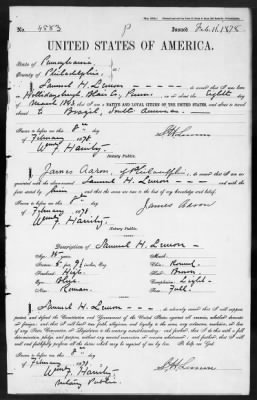 No. 4583
P
Issued Feb. 11, 1878
UNITED STATES OF AMERICA.
State of Pennsylvania
County of Philadelphia
I, Samuel H. Lemon
Hollidaysburgh, Blair Co, Penn. on the Eighth day of
March 1843 that I am a NATIVE AND LOYAL CITIZEN OF THE UNITED STATES, and about to travel
to Brazil, South America.
Sworn to before me this 8th day
of February 1878
S H Lemon
Notary Public.
I, James Aaron, of Philadelphia
acquainted with Samuel H. Lemon
Sworn to before me this 8th day
of February 1878
James Aaron
Notary Public.
Description of Samuel H. Lemon
Age, 35 years
Mouth,
Stature, 5 feet
Chin, Round
Forehead, High
Hair, Brown
Eyes, Blue
Complexion, Light
Nose, Roman
Face, Full
I, Samuel H. Lemon do solemnly swear that I will support,
protect and defend the Constitution and Government of the United States against all enemies, whether domestic
or foreign; and that I will bear true faith, allegiance, and loyalty to the same, any ordinance, resolution, or law
of any State, Convention, or Legislature to the contrary notwithstanding; and further, that I do this with a
full determination, pledge, and purpose, without any mental reservation or evasion whatsoever; and further, that I will
well and faithfully perform all the duties which may be required of me by law. So help me God.
Sworn to before me this 8th day
of February 1878
S H Lemon
Notary Public.